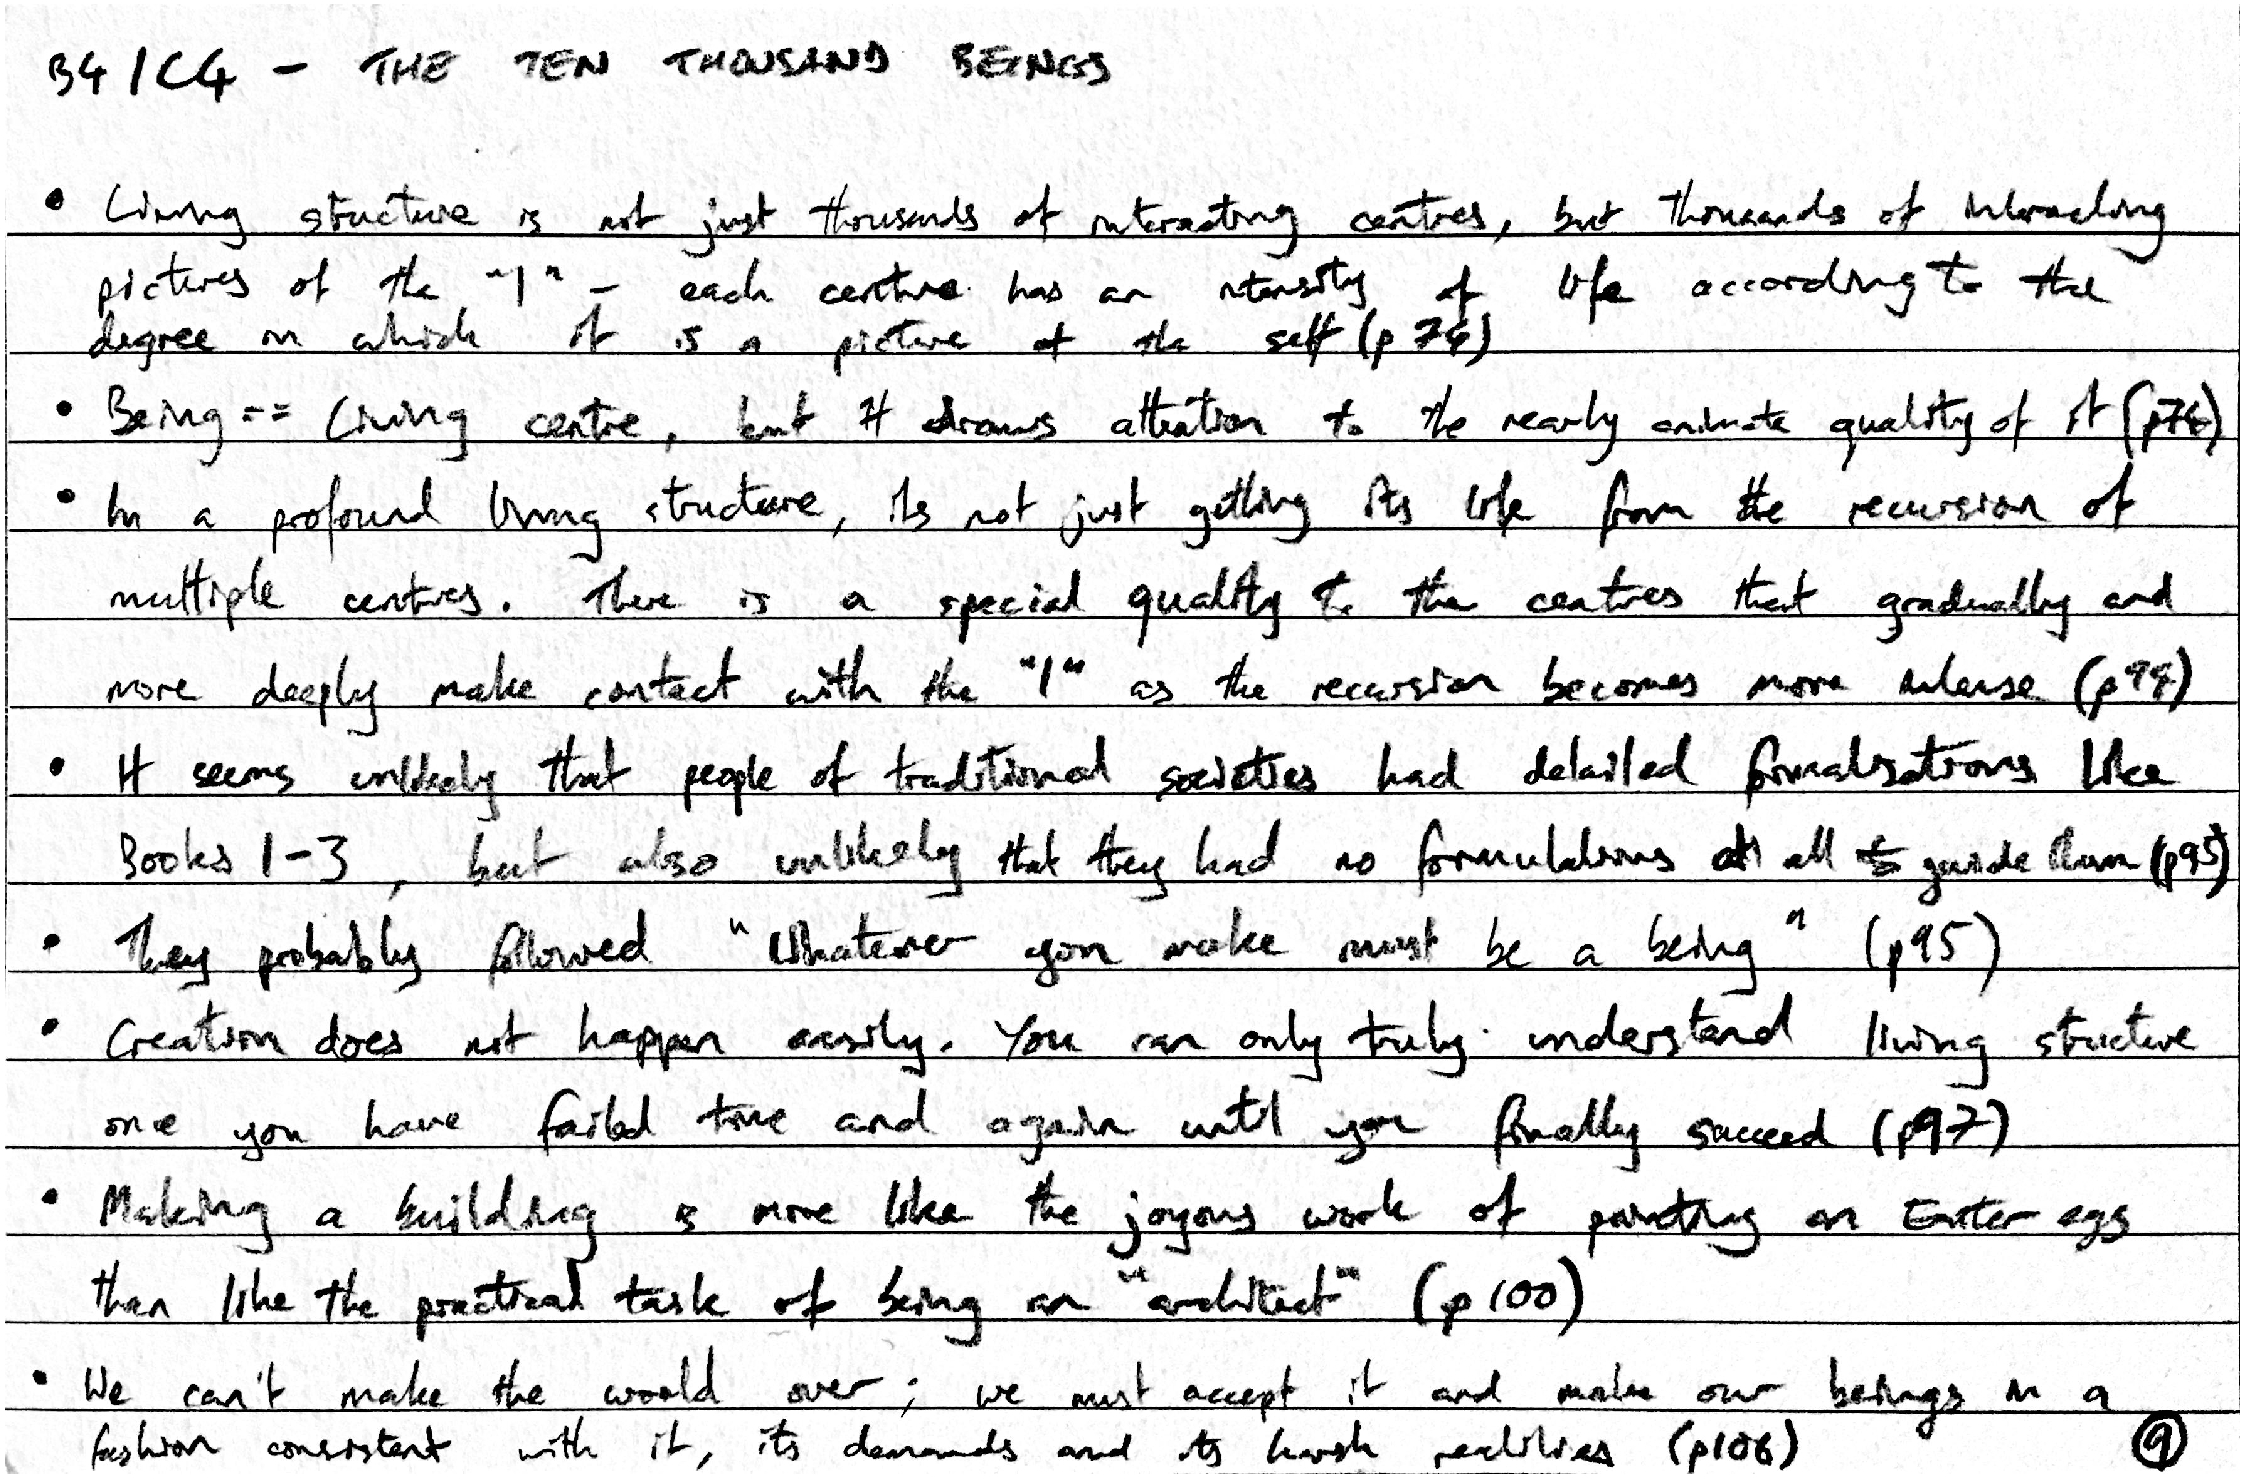 B4/C4 - THE TEN THOUSAND BEINGS
• Living structure is not just thousands of interacting centres, but thousands of interacting
pictures of the "I" - each centre has an intensity of life according to the
degree in which it is a picture of the self (p 76)
• Being == Living centre, but it draws attention to the nearly animate quality of it (p76)
• In a profound living structure, its not just getting its life from the recursion of
multiple centres. There is a special quality to the centres that gradually and
more deeply make contact with the "I" as the recursion becomes more intense
• It seems unlikely that people of traditional societies had detailed formalisations like
Books 1-3, but also unlikely that they had no formulations at all to guide them (p95)
• They probably followed "Whatever you make must be a being" (p95)
• Creation does not happen easily. You can only truly understand living structure
once you have failed time and again until you finally succeed (p97)
• Making a building is more like the joyous work of painting an Easter egg
than like the practical task of being an "architect" (p100)
• We can't make the world over; we must accept it and make our beings in a
fashion consistent with it, its demands and its harsh realities (p106)
9